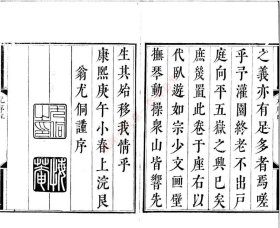 之義亦有足多者焉嗟
乎予灌園終老不出戸
庭向平五嶽之興已矣
庶幾置此卷于座右以
代臥遊如宗少文畫壁
撫琴動操衆山皆響先
生其殆移我情乎
康熙庚午小春上浣艮
翁尤侗謹序